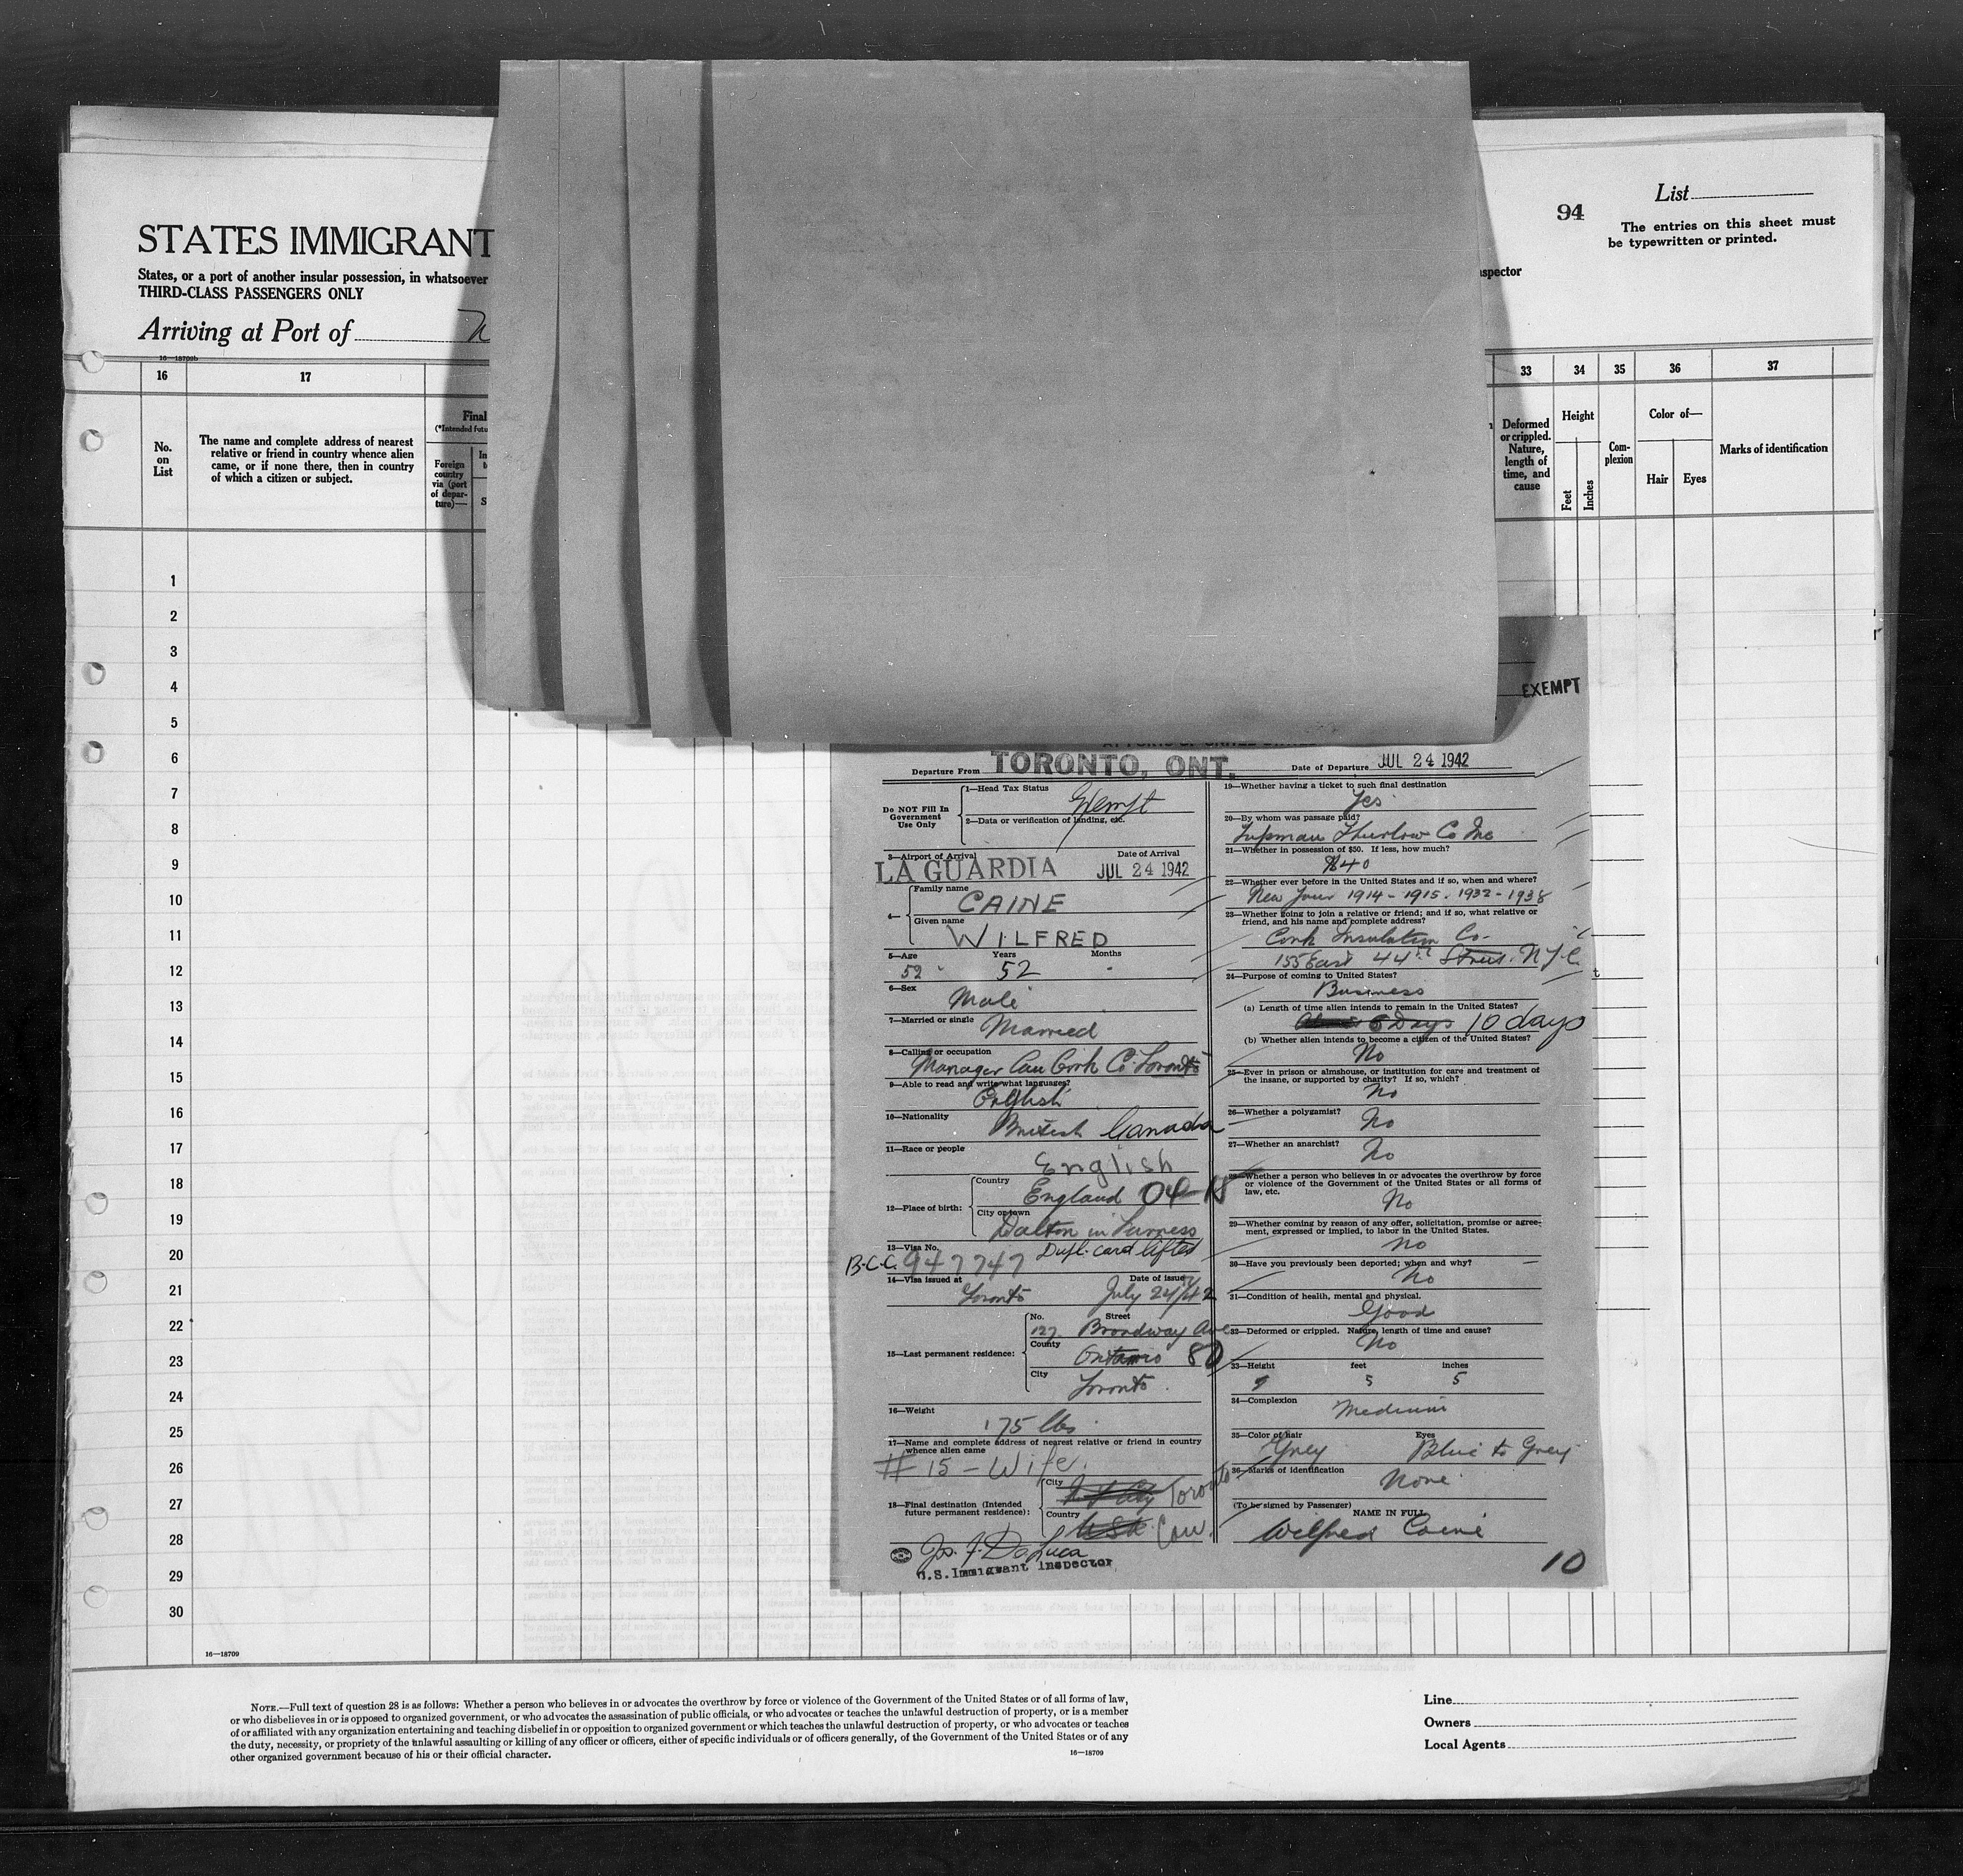 List
94
The entries on this sheet must
be typewritten or printed.
STATES IMMIGRANT
States, or a port of another insular possession, in whatsoever
THIRD-CLASS PASSENGERS ONLY
spector
Arriving at Port of
16—18709b
16 17 33 34 35 36 37
No.
on
List
The name and complete address of nearest
relative or friend in country whence alien
came, or if none there, then in country
of which a citizen or subject.
Final
(*Intended futu
Foreign
country
via (port
of depar-
ture)—
Deformed
or crippled.
Nature,
length of
time, and
cause
Height
Feet
Inches
Com-
plexion
Color of—
Hair Eyes
Marks of identification
1
2
3
4
5
6
7
8
9
10
11
12
13
14
15
16
17
18
19
20
21
22
23
24
25
26
27
28
29
30
16—18709
EXEMPT
Departure From TORONTO, ONT.
Date of Departure JUL 24 1942
Do NOT Fill In
Government
Use Only
1—Head Tax Status
Exempt
2—Data or verification of landing, etc.
3—Airport of Arrival Date of Arrival
LA GUARDIA JUL 24 1942
4—
Family name
CAINE
Given name
WILFRED
5—Age Years Months
52 52
6—Sex
Male
7—Married or single
Married
8—Calling or occupation
Manager Can Cork Co. Toronto
9—Able to read and write what languages?
English
10—Nationality
British Canada
11—Race or people
English
12—Place of birth:
Country
England 04-
City or town
Dalton in Furness
13—Visa No.
B.C.C. 947747 Dupl. card lifted
14—Visa issued at Date of issue
Toronto July 24/42
15—Last permanent residence:
No. Street
127 Broadway Ave
County
Ontario 80
City
Toronto
16—Weight
175 lbs
17—Name and complete address of nearest relative or friend in country
whence alien came
# 15 - Wife.
18—Final destination (Intended
future permanent residence):
City
N Y City Toronto
Country
USA Can.
Jos. J. DeLuca
U.S. Immigrant Inspector
19—Whether having a ticket to such final destination
Yes
20—By whom was passage paid?
Thurlow Co Inc
21—Whether in possession of $50. If less, how much?
$40
22—Whether ever before in the United States and if so, when and where?
New York 1914 - 1915. 1932 - 1938
23—Whether going to join a relative or friend; and if so, what relative or
friend, and his name and complete address?
Cork Insulation Co.
155 East 44th Street. N.Y.C.
24—Purpose of coming to United States?
Business
(a) Length of time alien intends to remain in the United States?
6 Days 10 days
(b) Whether alien intends to become a citizen of the United States?
No
25—Ever in prison or almshouse, or institution for care and treatment of
the insane, or supported by charity? If so, which?
No
26—Whether a polygamist?
No
27—Whether an anarchist?
No
28—Whether a person who believes in or advocates the overthrow by force
or violence of the Government of the United States or all forms of
law, etc.
No
29—Whether coming by reason of any offer, solicitation, promise or agree-
ment, expressed or implied, to labor in the United States.
No
30—Have you previously been deported; when and why?
No
31—Condition of health, mental and physical.
Good
32—Deformed or crippled. Nature, length of time and cause?
No
33—Height feet inches
5 5
34—Complexion
Medium
35—Color of hair Eyes
Grey Blue to Grey
36—Marks of identification
None
(To be signed by Passenger)
NAME IN FULL
Wilfred Caine
10
NOTE.—Full text of question 28 is as follows: Whether a person who believes in or advocates the overthrow by force or violence of the Government of the United States or of all forms of law,
or who disbelieves in or is opposed to organized government, or who advocates the assassination of public officials, or who advocates or teaches the unlawful destruction of property, or is a member
of or affiliated with any organization entertaining and teaching disbelief in or opposition to organized government or which teaches the unlawful destruction of property, or who advocates or teaches
the duty, necessity, or propriety of the unlawful assaulting or killing of any officer or officers, either of specific individuals or of officers generally, of the Government of the United States or of any
other organized government because of his or their official character.
16—18709
Line
Owners
Local Agents